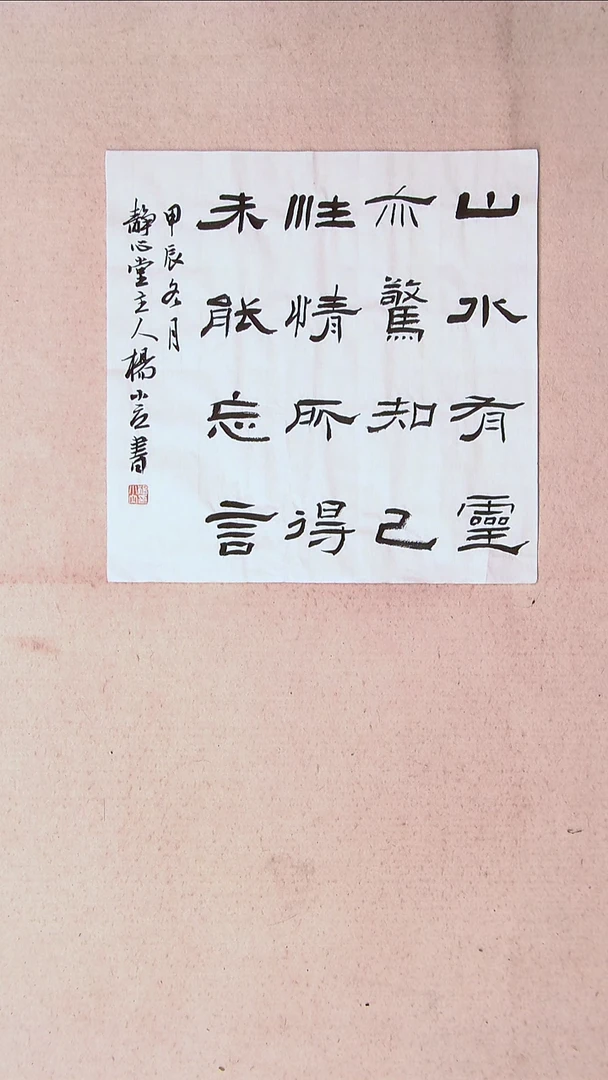 山水有靈
亦驚知己
性情所得
未能忘言
甲辰冬月
靜心堂主人楊小云書